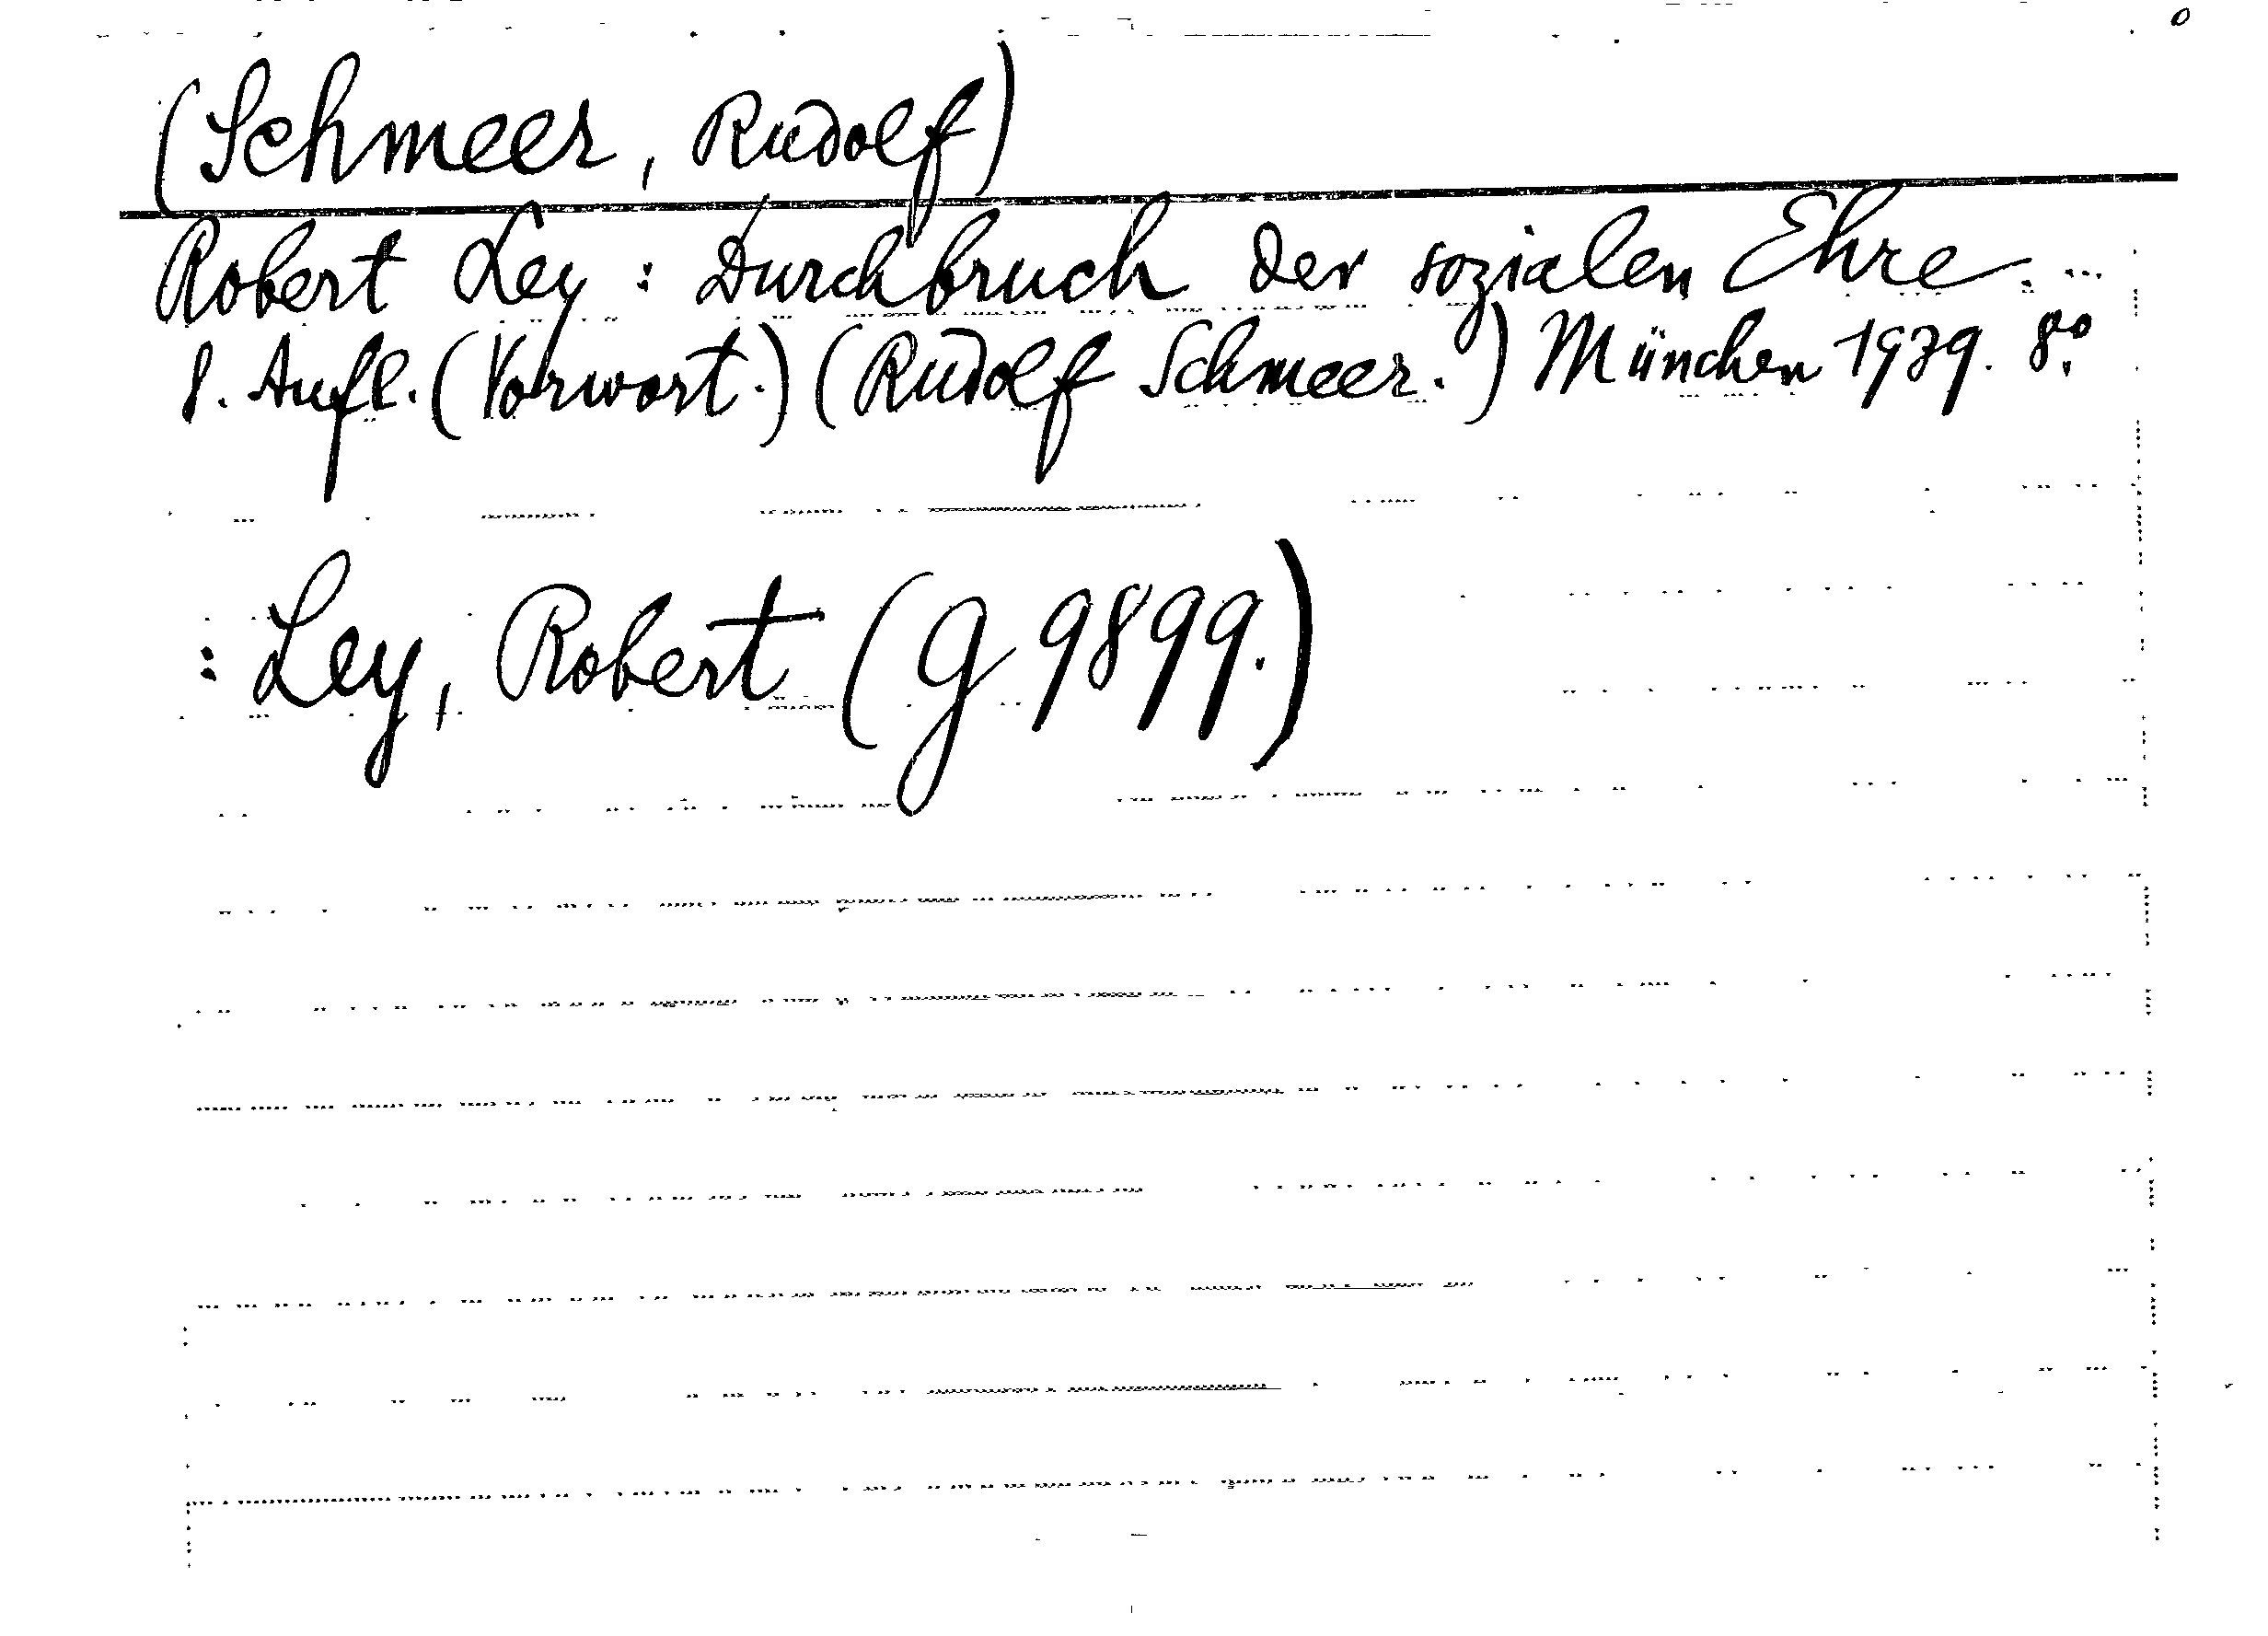 (Schmeer, Rudolf)
Robert Ley: Durchbruch der sozialen Ehre. ...
8. Aufl. (Vorwort.) (Rudolf Schmeer.) München 1939. 8°.
: Ley, Robert (g 9899.)